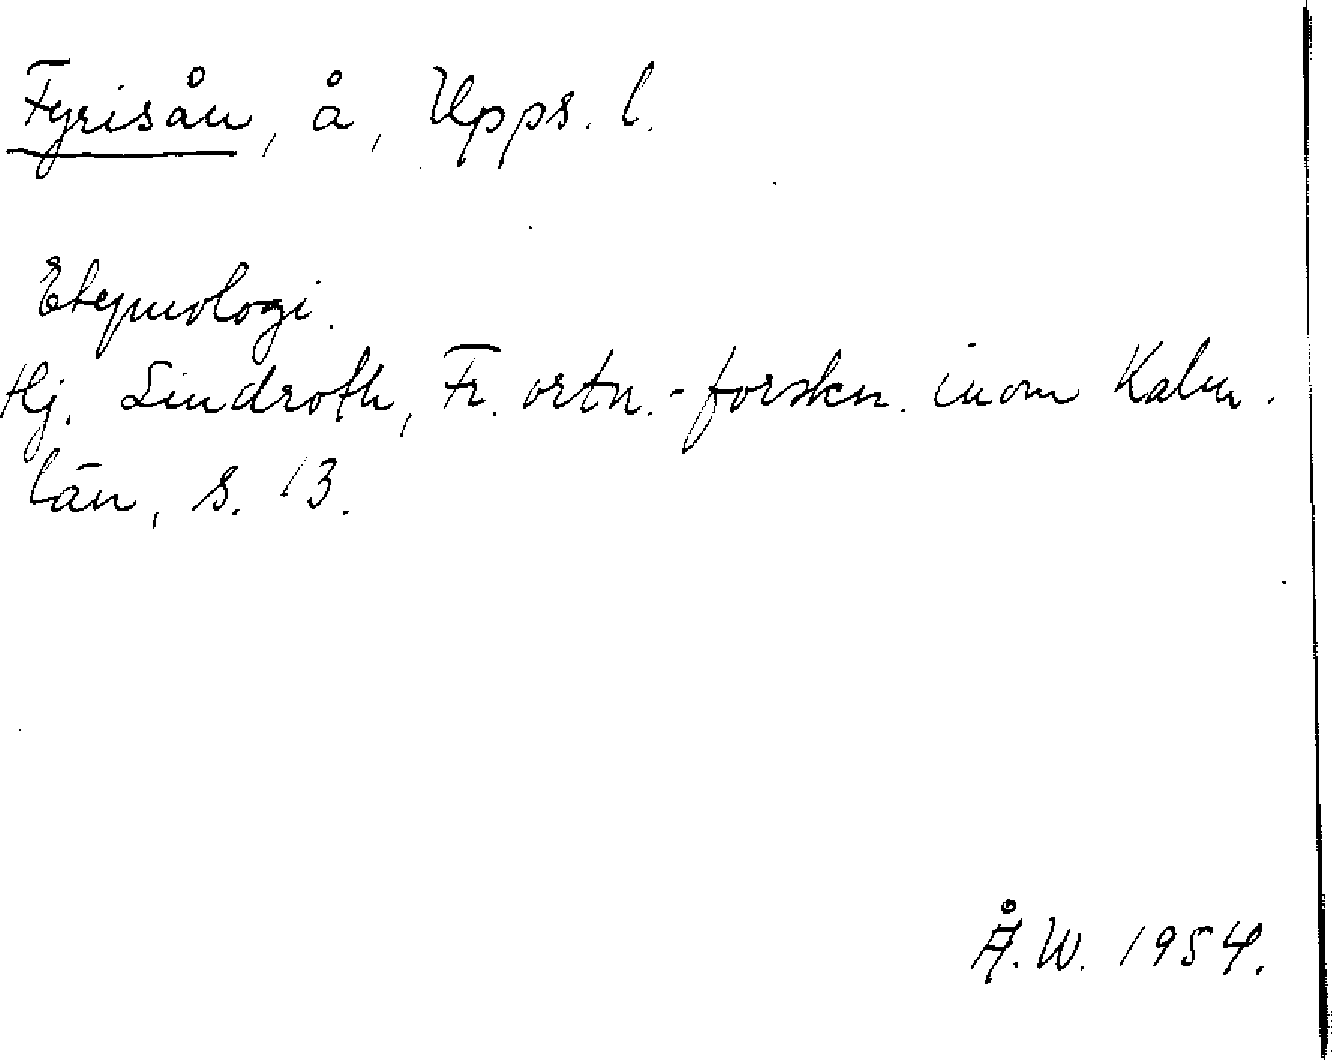 Fyrisån, å, Upps. l.
Etymologi.
Hj. Lindroth, Fr. ortn.-forskn. inom Kalm.
län, s. 13.
Å.W. 1954.